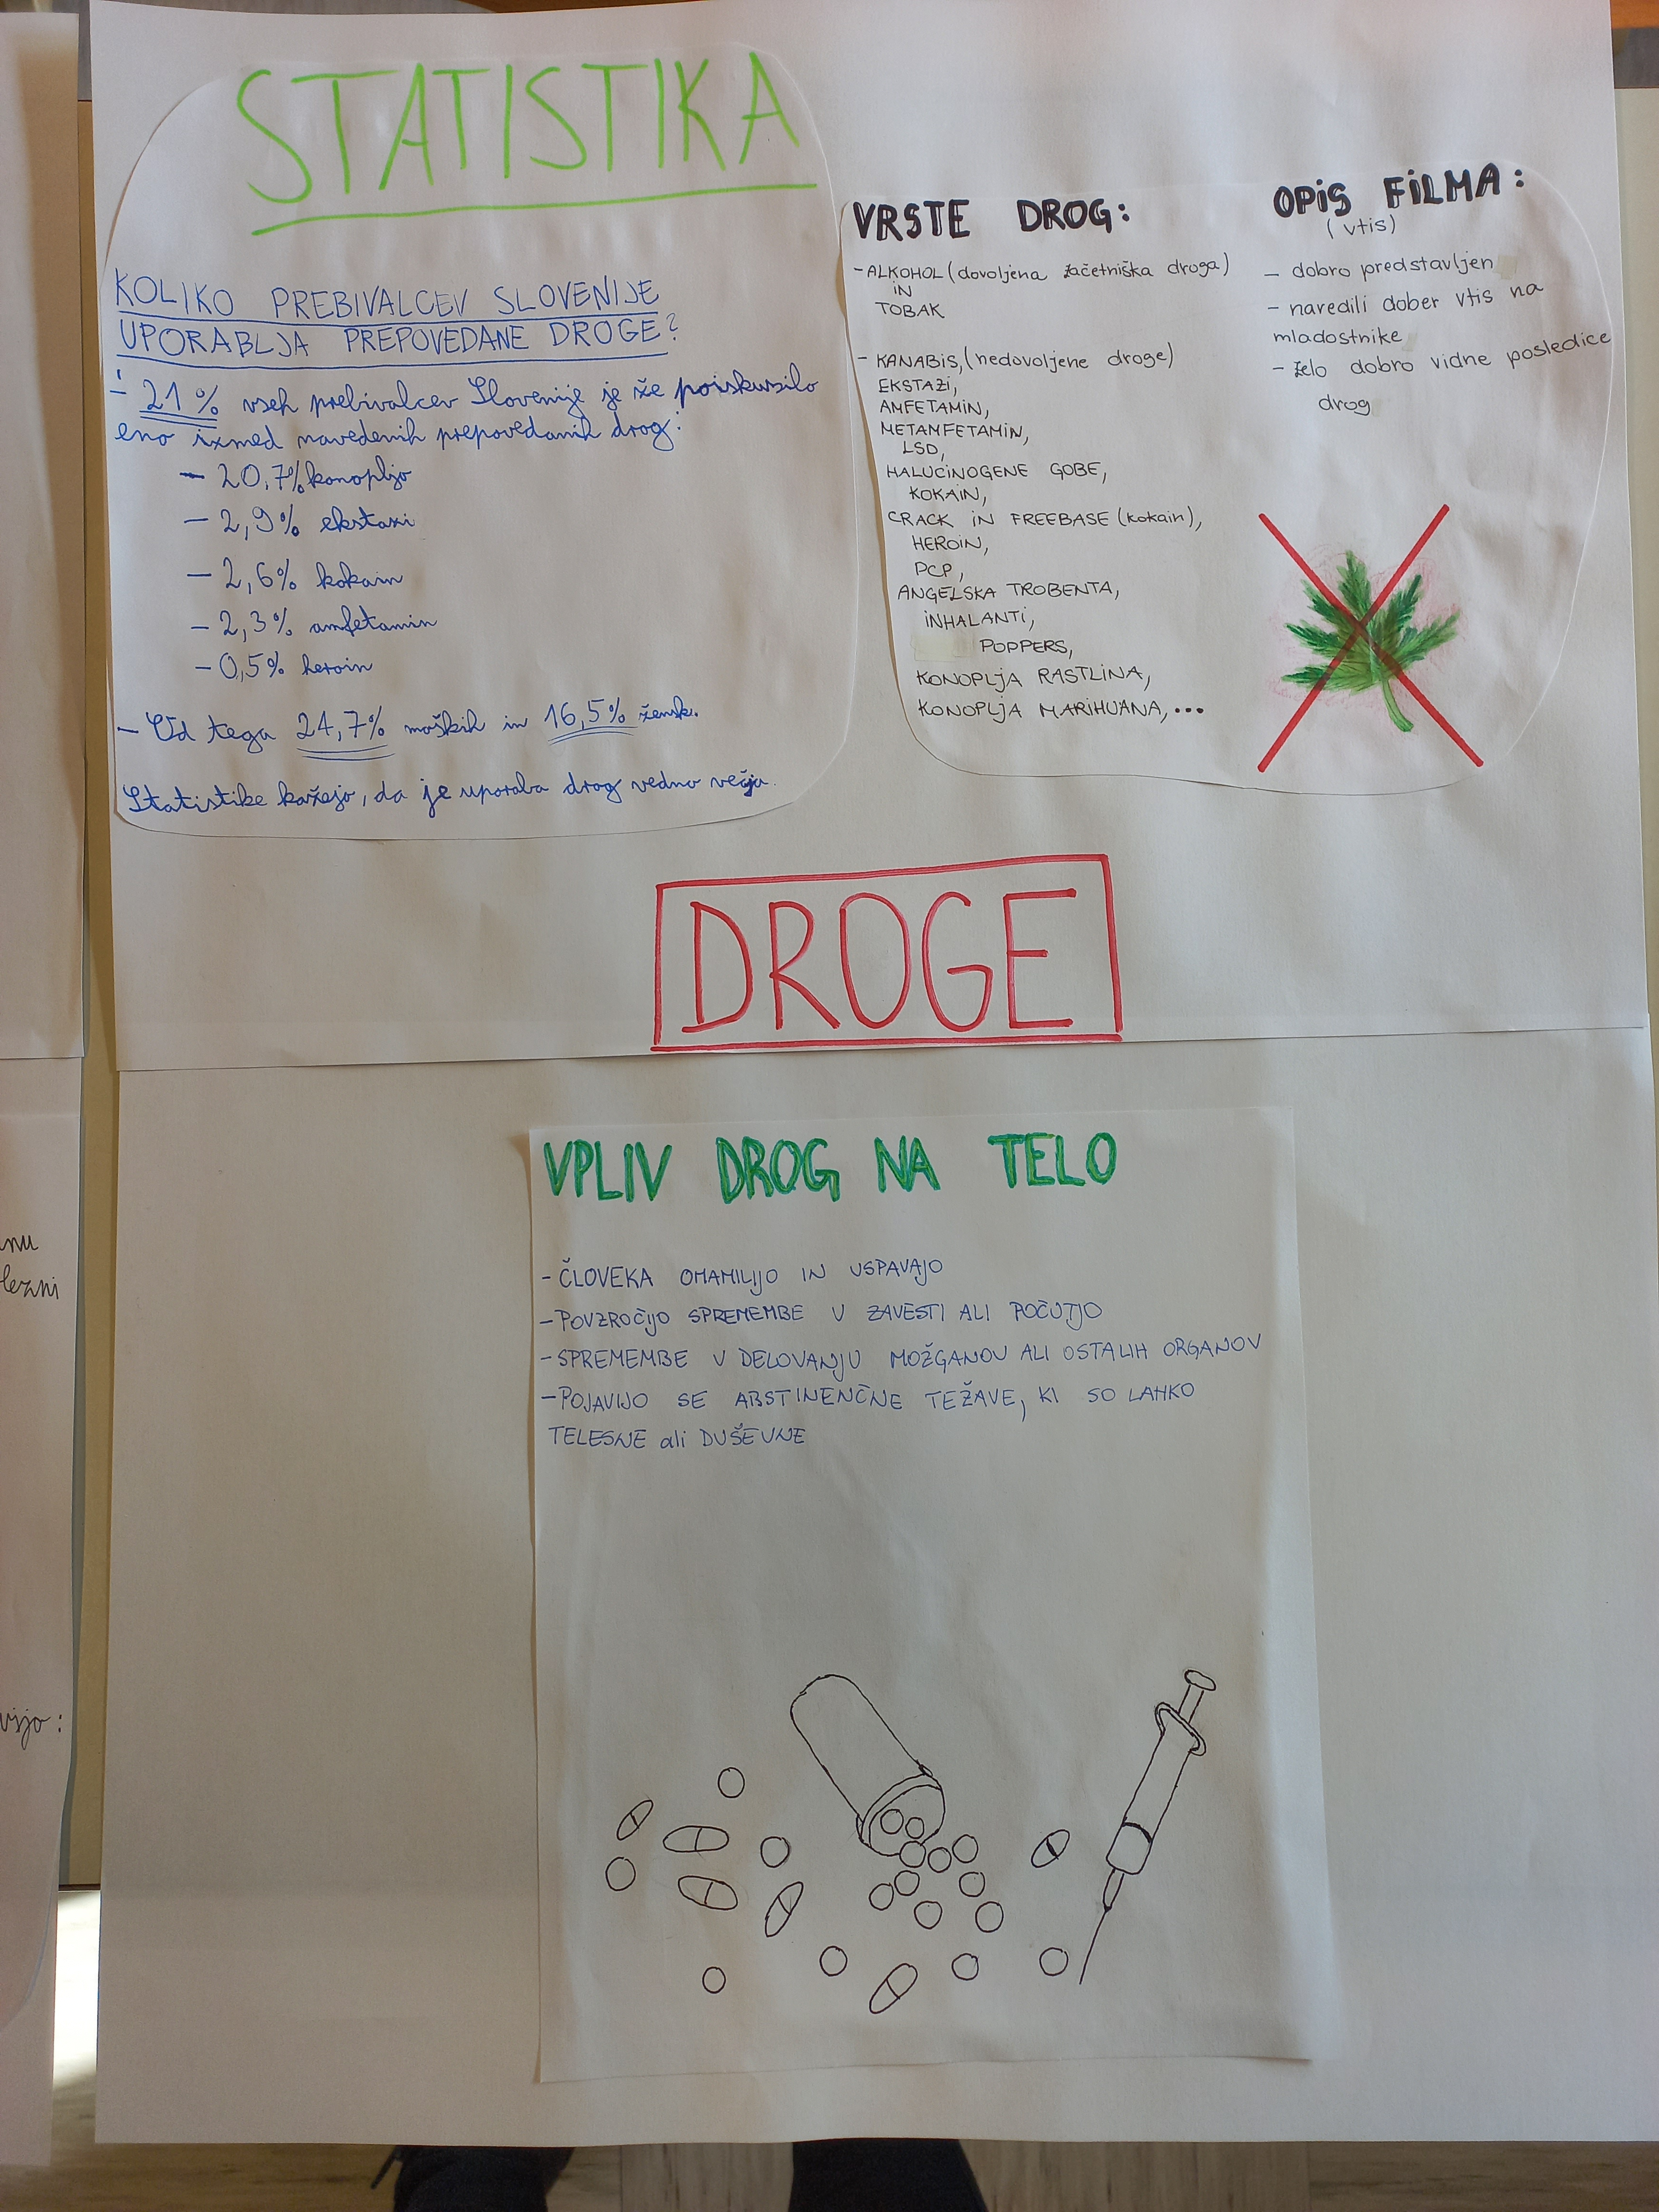 STATISTIKA
KOLIKO PREBIVALCEV SLOVENIJE
UPORABLJA PREPOVEDANE DROGE?
- 21% vseh prebivalcev Slovenije je že poiskusilo
eno izmed navedenih prepovedanih drog:
- 20,7% konopljo
- 2,9% ekstazi
- 2,6% kokain
- 2,3% amfetamin
- 0,5% heroin
- Od tega 24,7% moških in 16,5% žensk.
Statistike kažejo, da je uporaba drog vedno večja.
VRSTE DROG:
- ALKOHOL (dovoljena začetniška droga)
IN
TOBAK
- KANABIS, (nedovoljene droge)
EKSTAZI,
AMFETAMIN,
METAMFETAMIN,
LSD,
HALUCINOGENE GOBE,
KOKAIN,
CRACK IN FREEBASE (kokain),
HEROIN,
PCP,
ANGELSKA TROBENTA,
INHALANTI,
POPPERS,
KONOPLJA RASTLINA,
KONOPLJA MARIHUANA,...
OPIS FILMA:
(vtis)
- dobro predstavljen
- naredili dober vtis na
mladostnike
- zelo dobro vidne posledice
drog
DROGE
VPLIV DROG NA TELO
- ČLOVEKA OMAMILIJO IN USPAVAJO
- POVZROČIJO SPREMEMBE V ZAVESTI ALI POČUTJO
- SPREMEMBE V DELOVANJU MOŽGANOV ALI OSTALIH ORGANOV
- POJAVIJO SE ABSTINENČNE TEŽAVE, KI SO LAHKO
TELESNE ali DUŠEVNE